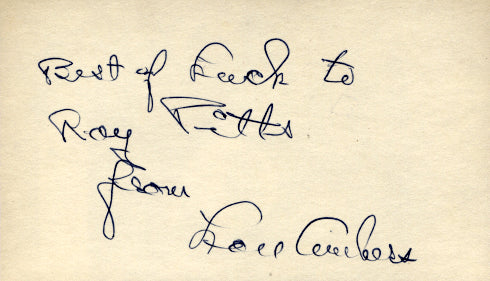 Best of Luck to
Roy Pitts
from
Lou Ambers